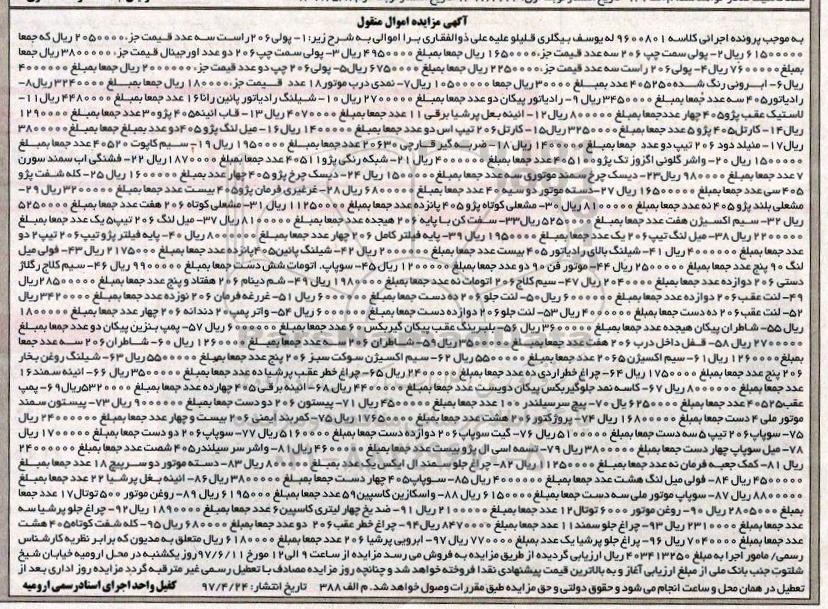 آگهی مزایده اموال منقول
به موجب پرونده اجرائی کلاسه ۹۶۰۰۸۰۱ له یوسف بیگلری قلیلو علیه علی ذوالفقاری برا اموالی به شرح زیر: ۱- پولی ۲۰۶ راست سه عدد قیمت جزء ۲۰۵۰۰۰۰ ریال که جمعا
۶۱۵۰۰۰۰ ریال ۲- پولی سمت چپ ۲۰۶ سه عدد قیمت جزء ۱۶۵۰۰۰۰ ریال جمعا بمبلغ ۴۹۵۰۰۰۰ ریال ۳- پولی سمت چپ ۲۰۶ دو عدد اورجینال قیمت جزء ۳۸۰۰۰۰۰ ریال جمعا
بمبلغ ۷۶۰۰۰۰۰ ریال ۴- پولی ۲۰۶ راست سه عدد قیمت جزء ۲۲۵۰۰۰۰ ریال جمعا بمبلغ ۶۷۵۰۰۰۰ ریال ۵- پولی ۲۰۶ چپ دو عدد قیمت جزء ۲۰۰۰۰۰۰ ریال جمعا بمبلغ ۴۰۰۰۰۰۰
ریال ۶- ابرونی رنگ شده ۴۰۵ ۲۵ عدد بمبلغ ۳۰۰۰۰ ریال جمعا ۱۰۵۰۰۰۰ ریال ۷- نمدی درب موتور ۱۸ عدد قیمت جزء ۱۸۰۰۰۰ ریال جمعا بمبلغ ۳۲۴۰۰۰۰ ریال ۸-
رادیاتور ۴۰۵ سه عدد جمعا بمبلغ ۳۴۵۰۰۰۰ ریال ۹- رادیاتور پیکان دو عدد جمعا بمبلغ ۲۷۰۰۰۰۰ ریال ۱۰- شیلنگ رادیاتور پائین رانا ۱۶ عدد جمعا بمبلغ ۴۴۸۰۰۰۰ ریال ۱۱-
لاستیک عقب پژو ۴۰۵ چهار عدد جمعا بمبلغ ۸۰۰۰۰۰ ریال ۱۲- ائینه بغل پرشیا برقی ۱۱ عدد جمعا بمبلغ ۴۰۷۰۰۰۰ ریال ۱۳- قاب ائینه ۴۰۵ پژو ۳۰ عدد جمعا بمبلغ ۱۲۹۰۰۰۰
ریال ۱۴- کارتل ۴۰۵ پژو ۵ عدد جمعا بمبلغ ۳۲۵۰۰۰۰ ریال ۱۵- کارتل ۲۰۶ تیپ اس دو عدد جمعا بمبلغ ۱۴۰۰۰۰۰ ریال ۱۶- میل لنگ پژو ۴۰۵ دو عدد بمبلغ جمعا بمبلغ ۳۸۰۰۰۰۰
ریال ۱۷- منیلد دود ۲۰۶ تیپ دو عدد جمعا بمبلغ ۱۴۰۰۰۰۰ ریال ۱۸- ضربه گیر قارچی ۲۰۶ ۳۰ عدد جمعا بمبلغ ۱۹۵۰۰۰۰ ریال ۱۹- سیم کاپوت ۴۰۵ ۲۰ عدد بمبلغ
۱۵۰۰۰۰۰ ریال ۲۰- واشر گلونی اگزوز تک پژو ۴۰۵ ۱۰ عدد جمعا بمبلغ ۴۰۰۰۰۰ ریال ۲۱- شبکه رنگی پژو ۴۰۵ ۱۱ عدد جمعا بمبلغ ۱۸۷۰۰۰۰ ریال ۲۲- فشنگی اب سمند سورن
۷ عدد جمعا بمبلغ ۹۸۰۰۰۰ ریال ۲۳- دیسک چرخ سمند موتوری سه عدد جمعا بمبلغ ۱۵۰۰۰۰۰ ریال ۲۴- دیسک چرخ پژو ۴۰۵ چهار عدد جمعا بمبلغ ۱۶۰۰۰۰۰ ریال ۲۵- کله شفت پژو
۴۰۵ سی عدد جمعا بمبلغ ۱۶۵۰۰۰۰ ریال ۲۷- دسته موتور دو سیه ۴۰ عدد جمعا بمبلغ ۶۸۰۰۰۰۰ ریال ۲۸- غرغیری فرمان پژو ۴۰۵ بیست عدد جمعا بمبلغ ۳۲۰۰۰۰۰ ریال ۲۹-
مشعلی بلند پژو ۴۰۵ نه عدد جمعا بمبلغ ۸۱۰۰۰۰ ریال ۳۰- مشعلی کوتاه پژو ۴۰۵ پانزده عدد جمعا بمبلغ ۱۱۲۵۰۰۰ ریال ۳۱- مشعلی کوتاه ۲۰۶ هفت عدد جمعا بمبلغ ۵۲۵۰۰۰
ریال ۳۲- سیم اکسیژن هفت عدد جمعا بمبلغ ۵۲۵۰۰۰۰ ریال ۳۳- سفت کن با پایه ۲۰۶ هیجده عدد جمعا بمبلغ ۸۱۰۰۰۰۰ ریال ۳۷- میل لنگ ۲۰۶ تیپ ۵ یک عدد جمعا بمبلغ
۲۲۰۰۰۰۰ ریال ۳۸- میل لنگ تیپ ۲ ۲۰۶ یک عدد جمعا بمبلغ ۱۹۵۰۰۰۰ ریال ۳۹- پایه فیلتر کامل ۲۰۶ چهار عدد جمعا بمبلغ ۸۰۰۰۰۰ ریال ۴۰- پایه فیلتر پژو تیپ ۲۰۶ تیپ ۲ دو
عدد جمعا بمبلغ ۴۰۰۰۰۰ ریال ۴۱- شیلنگ بالای رادیاتور ۴۰۵ بیست عدد جمعا بمبلغ ۲۰۰۰۰۰۰ ریال ۴۲- شیلنگ پائین ۴۰۵ پانزده عدد جمعا بمبلغ ۲۱۷۵۰۰۰ ریال ۴۳- فولی میل
لنگ ۹۰ پنج عدد جمعا بمبلغ ۲۵۰۰۰۰۰ ریال ۴۴- موتور فن ۹۰ دو عدد جمعا بمبلغ ۱۲۰۰۰۰۰ ریال ۴۵- سوپاپ، اتومات شش دست جمعا بمبلغ ۹۹۰۰۰۰۰ ریال ۴۶- سیم کلاج رگلاژ
دستی ۲۰۶ دوازده عدد جمعا بمبلغ ۲۰۴۰۰۰۰ ریال ۴۷- سیم کلاج ۲۰۶ اتومات نه عدد جمعا بمبلغ ۱۹۸۰۰۰۰ ریال ۴۹- شم دینام ۲۰۶ هفتاد و پنج عدد جمعا بمبلغ ۲۸۵۰۰۰۰ ریال
۴۹- لنت عقب ۲۰۶ دوازده عدد جمعا بمبلغ ۶۰۰۰۰۰۰ ریال ۵۰- لنت جلو ۲۰۶ ده دست جمعا بمبلغ ۶۰۰۰۰۰۰ ریال ۵۱- غرغره فرمان ۲۰۶ نوزده عدد جمعا بمبلغ ۳۴۲۰۰۰۰ ریال
۵۲- لنت عقب ۲۰۶ ده دست جمعا بمبلغ ۴۰۰۰۰۰۰ ریال ۵۳- لنت جلو ۲۰۶ دوازده دست جمعا بمبلغ ۶۰۰۰۰۰۰ ریال ۵۴- واتر پمپ ۲۰ دندانه ۲۰۶ چهار عدد جمعا بمبلغ ۱۸۰۰۰۰۰
ریال ۵۵- شاطران پیکان هیجده عدد جمعا بمبلغ ۳۶۰۰۰۰۰ ریال ۵۶- بلبرینگ عقب پیکان گیربکس ۱۶ عدد جمعا بمبلغ ۶۰۰۰۰۰۰ ریال ۵۷- پمپ بنزین پیکان دو عدد جمعا بمبلغ
۲۷۰۰۰۰ ریال ۵۸- قفل داخل درب ۲۰۶ هفت عدد جمعا بمبلغ ۳۵۰۰۰۰۰ ریال ۵۹- شاطران ۲۰۶ سه عدد جمعا بمبلغ ۱۲۶۰۰۰۰ ریال ۶۰- شاطران ۲۰۶ سه عدد جمعا
بمبلغ ۱۲۶۰۰۰۰ ریال ۶۱- سیم اکسیژن ۲۰۶ ۵ عدد جمعا بمبلغ ۵۵۰۰۰۰۰ ریال ۶۲- سیم اکسیژن سوکت سبز ۲۰۶ پنج عدد جمعا بمبلغ ۵۵۰۰۰۰۰ ریال ۶۳- شیلنگ روغن بخار
۲۰۶ پنج عدد جمعا بمبلغ ۱۷۵۰۰۰۰ ریال ۶۴- چراغ خطر اردی ده عدد جمعا بمبلغ ۲۴۰۰۰۰۰ ریال ۶۵- چراغ خطر عقب پرشیا ده عدد جمعا بمبلغ ۳۵۰۰۰۰۰ ریال ۶۶- ائینه سمند ۱۶
عدد جمعا بمبلغ ۸۰۰۰۰۰۰ ریال ۶۷- کاسه نمد جلو گیربکس پیکان دویست عدد جمعا بمبلغ ۴۴۰۰۰۰۰ ریال ۶۸- ائینه برقی ۴۰۵ چهارده عدد جمعا بمبلغ ۵۳۲۰۰۰۰ ریال ۶۹- پمپ
عقب ۴۰۵ ۲۵ عدد جمعا بمبلغ ۶۲۵۰۰۰۰ ریال ۷۰- پیچ سرسیلندر ۱۰۰ عدد جمعا بمبلغ ۴۵۰۰۰۰۰ ریال ۷۱- پیستون ۲۰۶ دو دست جمعا بمبلغ ۹۰۰۰۰۰۰ ریال ۷۳- پیستون سمند
موتور ملی ۴ دست جمعا بمبلغ ۱۶۸۰۰۰۰۰ ریال ۷۴- پروژکتور ۲۰۶ هشت عدد جمعا بمبلغ ۱۷۶۵۰۰۰ ریال ۷۵- کمربند ایمنی ۲۰۶ بیست و چهار عدد جمعا بمبلغ ۲۴۰۰۰۰۰
۷۵- سوپاپ ۲۰۶ تیپ ۵ سه دست جمعا بمبلغ ۵۱۰۰۰۰۰ ریال ۷۶- گیت سوپاپ ۲۰۶ دوازده دست جمعا بمبلغ ۵۱۶۰۰۰۰ ریال ۷۷- سوپاپ ۲۰۶ دو دست جمعا بمبلغ ۱۷۰۰۰۰۰ ریال
۷۸- میل سوپاپ چهار دست جمعا بمبلغ ۳۸۰۰۰۰۰ ریال ۷۹- تسمه اسی ال پژو بیست عدد جمعا بمبلغ ۴۶۰۰۰۰۰ ریال ۸۱- واشر سر سیلندر ۴۰۵ شصت عدد جمعا بمبلغ ۲۴۰۰۰۰۰
ریال ۸۱- کمک جعبه فرمان نه عدد جمعا بمبلغ ۱۱۲۵۰۰۰ ریال ۸۲- چراغ جلو سمند ال ایکس یک عدد جمعا بمبلغ ۸۰۰۰۰۰ ریال ۸۳- دسته موتور دو سر پیچ ۱۸ عدد جمعا بمبلغ
۴۵۰۰۰۰۰ ریال ۸۴- فولی میل لنگ هشت عدد جمعا بمبلغ ۴۰۰۰۰۰۰ ریال ۸۵- سوپاپ ۴۰۵ چهار دست جمعا بمبلغ ۳۸۰۰۰۰۰ ریال ۸۶- ائینه بغل پرشیا ۲۲ عدد جمعا بمبلغ
۸۸۰۰۰۰۰ ریال ۸۷- سوپاپ موتور ملی سه دست جمعا بمبلغ ۶۱۵۰۰۰۰ ریال ۸۸- واسکازین کاسپین ۵۹ عدد جمعا بمبلغ ۶۱۹۵۰۰۰ ریال ۸۹- روغن موتور ۵۰۰ توتال ۱۷ عدد جمعا
بمبلغ ۲۸۰۵۰۰۰ ریال ۹۰- روغن موتور ۶۰۰۰ توتال ۱۲ عدد جمعا بمبلغ ۲۱۰۰۰۰۰ ریال ۹۱- ضد یخ چهار لیتری کاسپین ۶ عدد جمعا بمبلغ ۱۸۹۰۰۰۰ ریال ۹۲- چراغ جلو پرشیا سه
عدد جمعا بمبلغ ۲۳۱۰۰۰۰ ریال ۹۳- چراغ جلو سمند ۱۱ عدد جمعا بمبلغ ۸۴۷۰۰۰۰ ریال ۹۴- چراغ خطر عقب ۲۰۶ دو عدد جمعا بمبلغ ۶۸۰۰۰۰ ریال ۹۵- کله شفت کوتاه ۴۰۵ هشت
عدد جمعا بمبلغ ۷۰۴۰۰۰۰ ریال ۹۶- چراغ جلو پرشیا یک عدد جمعا بمبلغ ۷۷۰۰۰۰ ریال ۹۷- ابرویی پرشیا ۲۰۶ عدد جمعا بمبلغ ۶۱۸۰۰۰۰ ریال متعلق به مدیون که برابر نظریه کارشناس
رسمی/ مامور اجرا به مبلغ ۴۰۳۴۱۳۲۵۰ ریال ارزیابی گردیده از طریق مزایده به فروش می رسد مزایده از ساعت ۹ الی ۱۲ مورخ ۹۷/۶/۱۱ روز یکشنبه در محل ارومیه خیابان شیخ
شلتوت جنب بانک ملی از مبلغ ارزیابی آغاز و به بالاترین قیمت پیشنهادی نقدا فروخته خواهد شد و چنانچه روز مزایده مصادف با تعطیل رسمی غیر مترقبه گردد مزایده روز اداری بعد از
تعطیل در همان محل و ساعت انجام می شود و حقوق دولتی و حق مزایده طبق مقررات وصول خواهد شد. م الف ۳۸۸ تاریخ انتشار: ۹۷/۴/۲۴ کفیل واحد اجرای اسناد رسمی ارومیه